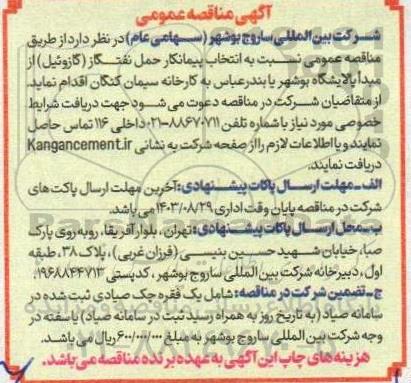 آگهی مناقصه عمومی
شرکت بین المللی ساروج بوشهر (سهامی عام) در نظر دارد از طریق
مناقصه عمومی نسبت به انتخاب پیمانکار حمل نفتگاز (گازوئیل) از
مبدأ پالایشگاه بوشهر یا بندرعباس به کارخانه سیمان کنگان اقدام نماید.
از متقاضیان شرکت در مناقصه دعوت می شود جهت دریافت شرایط
خصوصی مورد نیاز با شماره تلفن ۸۸۶۷۰۷۱۱-۰۲۱ داخلی ۱۱۶ تماس حاصل
نمایند و یا اطلاعات لازم را از صفحه شرکت به نشانی Kangancement.ir
دریافت نمایند.
الف - مهلت ارسال پاکات پیشنهادی: آخرین مهلت ارسال پاکت های
شرکت در مناقصه پایان وقت اداری ۱۴۰۳/۰۸/۲۹ می باشد.
ب - محل ارسال پاکات پیشنهادی: تهران، بلوار آفریقا، روبه روی پارک
صبا، خیابان شهید حسین بنیسی (فرزان غربی)، پلاک ۳۸، طبقه
اول، دبیرخانه شرکت بین المللی ساروج بوشهر، کدپستی ۱۹۶۸۸۴۴۷۱۳.
ج - تضمین شرکت در مناقصه: شامل یک فقره چک صیادی ثبت شده در
سامانه صیاد (به تاریخ روز به همراه رسید ثبت در سامانه صیاد) یا سفته در
وجه شرکت بین المللی ساروج بوشهر به مبلغ ۶۰۰/۰۰۰/۰۰۰ ریال می باشد.
هزینه های چاپ این آگهی به عهده برنده مناقصه می باشد.